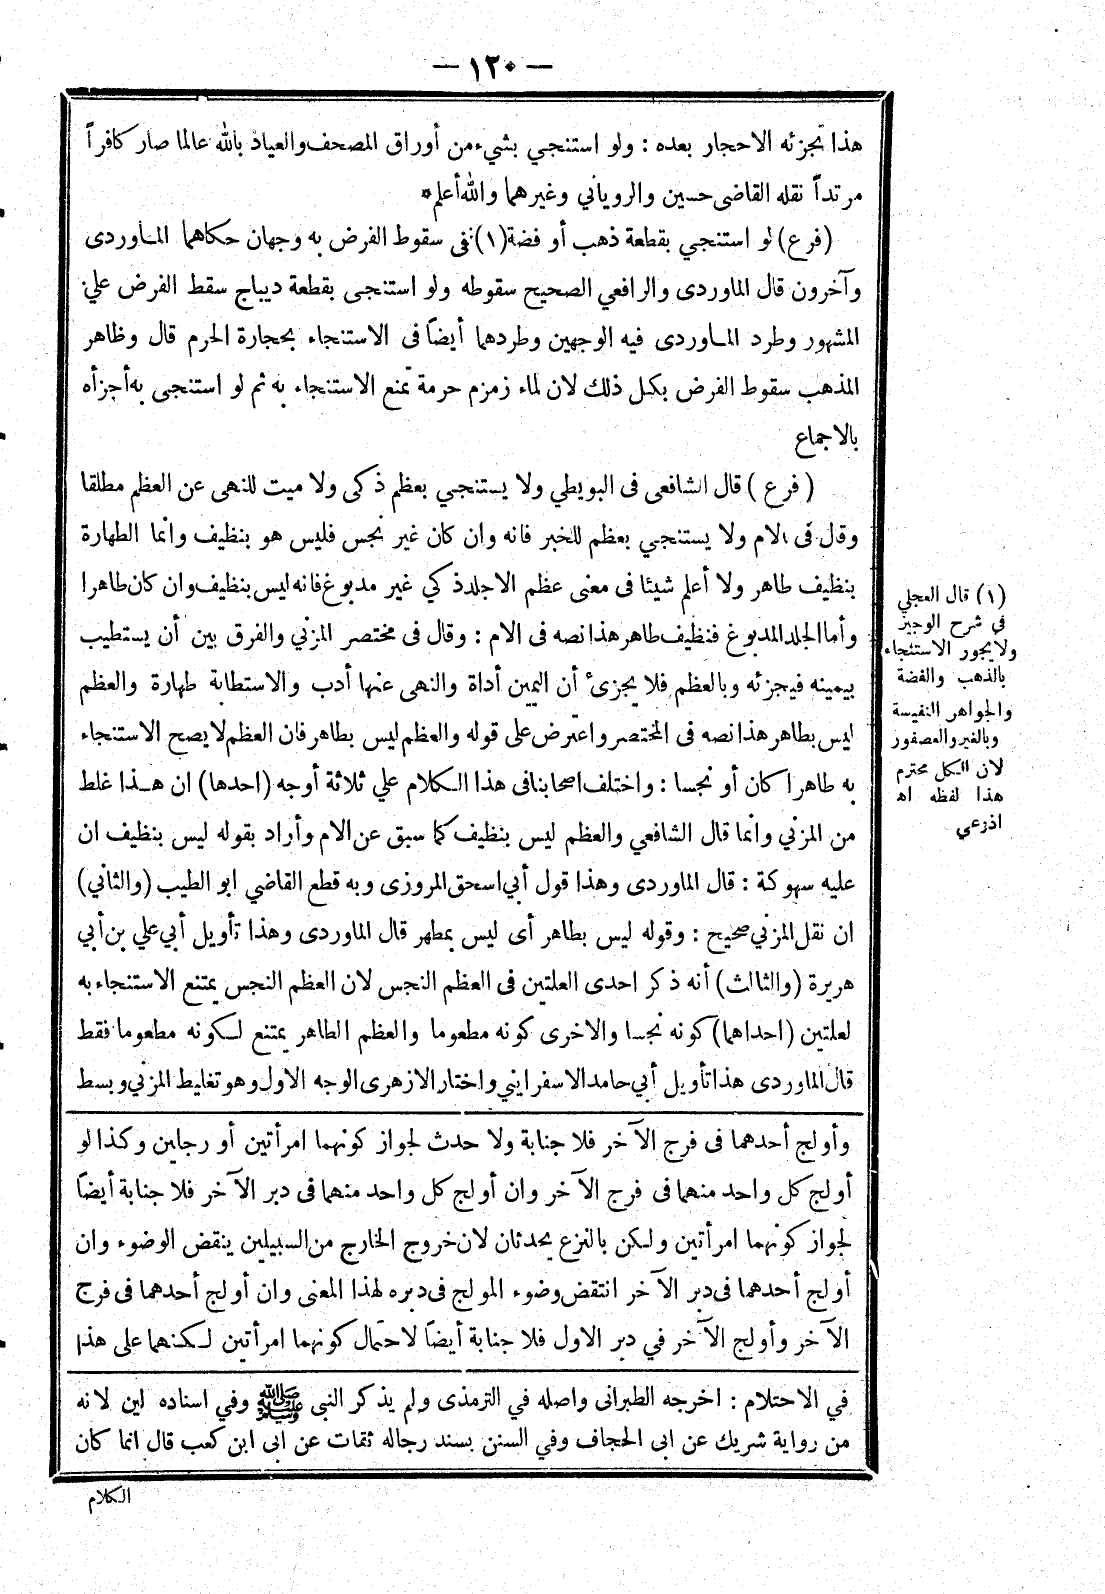 — ١٢٠ —
هذا تجزئه الاحجار بعده : ولو استنجي بشيء من أوراق المصحف والعياذ بالله عالما صار كافراً
مرتداً نقله القاضى حسين والروياني وغيرهما والله أعلم *
(فرع) لو استنجي بقطعة ذهب أو فضة (١) ففى سقوط الفرض به وجهان حكاهما المـاوردى
وآخرون قال الماوردى والرافعي الصحيح سقوطه ولو استنجى بقطعة ديباج سقط الفرض علي
المشهور وطرد المـاوردى فيه الوجهين وطردهما أيضاً فى الاستنجاء بحجارة الحرم قال وظاهر
المذهب سقوط الفرض بكل ذلك لان لماء زمزم حرمة تمنع الاستنجاء به ثم لو استنجى به أجزأه
بالاجماع
( فرع ) قال الشافعى فى البويطي ولا يستنجي بعظم ذكى ولا ميت للنهى عن العظم مطلقا
وقال فى الام ولا يستنجي بعظم للخبر فانه وان كان غير نجس فليس هو بنظيف وانما الطهارة
بنظيف طاهر ولا أعلم شيئا فى معنى عظم الا جلد ذكي غير مدبوغ فانه ليس بنظيف وان كان طاهرا
وأما الجلد المدبوغ فنظيف طاهر هذا نصه فى الام : وقال فى مختصر المزني والفرق بين أن يستطيب
بيمينه فيجزئه وبالعظم فلا يجزئ أن اليمين أداة والنهى عنها أدب والاستطابة طهارة والعظم
ليس بطاهر هذا نصه فى المختصر واعترض على قوله والعظم ليس بطاهر فان العظم لا يصح الاستنجاء
به طاهرا كان أو نجسا : واختلف اصحابنا فى هذا الكلام علي ثلاثة أوجه (احدها) ان هـذا غلط
من المزني وانما قال الشافعي والعظم ليس بنظيف كما سبق عن الام وأراد بقوله ليس بنظيف ان
عليه سهوكة : قال الماوردى وهذا قول أبي اسحق المروزى وبه قطع القاضي ابو الطيب (والثاني)
ان نقل المزني صحيح : وقوله ليس بطاهر أى ليس بمطهر قال الماوردى وهذا تأويل أبي علي بن أبي
هريرة (والثالث) أنه ذكر احدى العلتين فى العظم النجس لان العظم النجس يمتنع الاستنجاء به
لعلتين (احداهما) كونه نجسا والاخرى كونه مطعوما والعظم الطاهر يمتنع لكونه مطعوما فقط
قال الماوردى هذا تأويل أبي حامد الاسفرايني واختار الازهرى الوجه الاول وهو تغليط المزني وبسط
(١) قال العجلي
في شرح الوجيز
ولا يجور الاستنجاء
بالذهب والفضة
والجواهر النفيسة
وبالغير والعصفور
لان الكل محترم
هذا لفظه اه
اذرعي
وأولج أحدهما فى فرج الآخر فلا جنابة ولا حدث لجواز كونهما امرأتين أو رجلين وكذا لو
أولج كل واحد منهما فى فرج الآخر وان أولج كل واحد منهما فى دبر الآخر فلا جنابة أيضاً
لجواز كونهما امرأتين ولكن بالنزع يحدثان لان خروج الخارج من السبيلين ينقض الوضوء وان
أولج أحدهما فى دبر الآخر انتقض وضوء المولج فى دبره لهذا المعنى وان أولج أحدهما فى فرج
الآخر وأولج الآخر في دبر الاول فلا جنابة أيضاً لاحتمال كونهما امرأتين لكنهما على هذا
في الاحتلام : اخرجه الطبرانى واصله في الترمذى ولم يذكر النبى ﷺ وفي اسناده لين لانه
من رواية شريك عن ابى الحجاف وفي السنن بسند رجاله ثقات عن ابى ابن كعب قال انما كان
الكلام